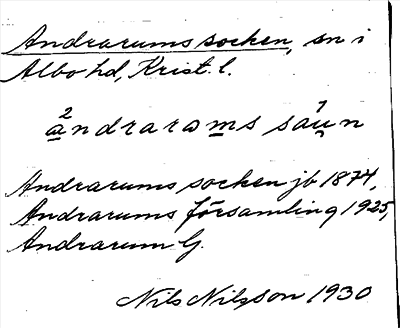 Andrarums socken, sn i
Albo hd, Krist. l.
a²ndrarams sa¹un
Andrarums socken jb 1874,
Andrarums församling 1925,
Andrarum G.
Nils Nilsson 1930